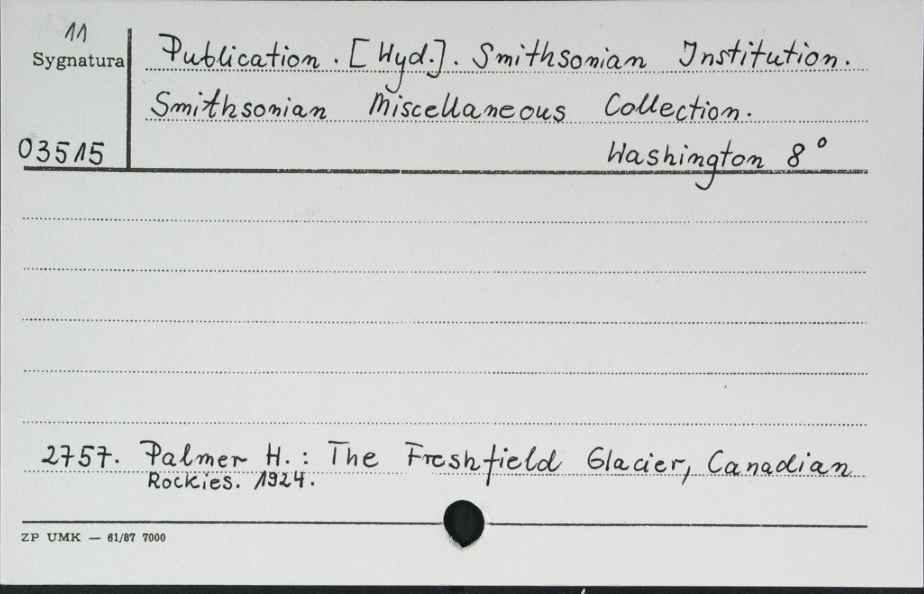 11
Sygnatura
03515
Publication. [Wyd.]. Smithsonian Institution.
Smithsonian Miscellaneous Collection.
Washington 8°
2757. Palmer H.: The Freshfield Glacier, Canadian
Rockies. 1924.
ZP UMK — 61/87 7000